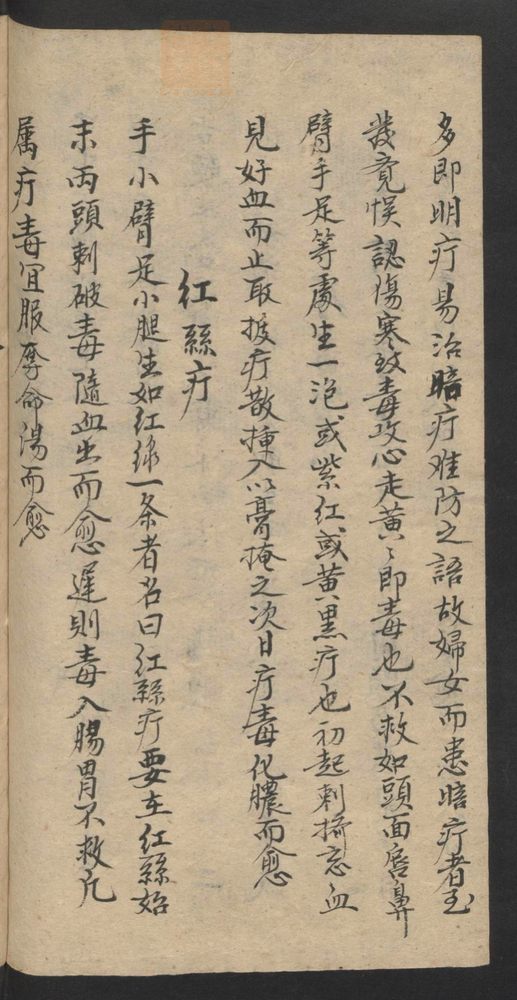 多即明疔易治暗疔难防之語故婦女而患暗疔者至
發竟悞認傷寒致毒攻心走黃〻即毒也不救如頭面唇鼻
臂手足等處生一泡或紫红或黄黑疔也初起刺擠惡血
見好血而止取拔疔散揷入以膏掩之次日疔毒化膿而愈
红絲疔
手小臂足小腿生如红線一条者名曰红絲疔要在红絲始
末両頭刺破毒隨血出而愈遲則毒入腸胃不救凢
属疔毒冝服奪命湯而愈